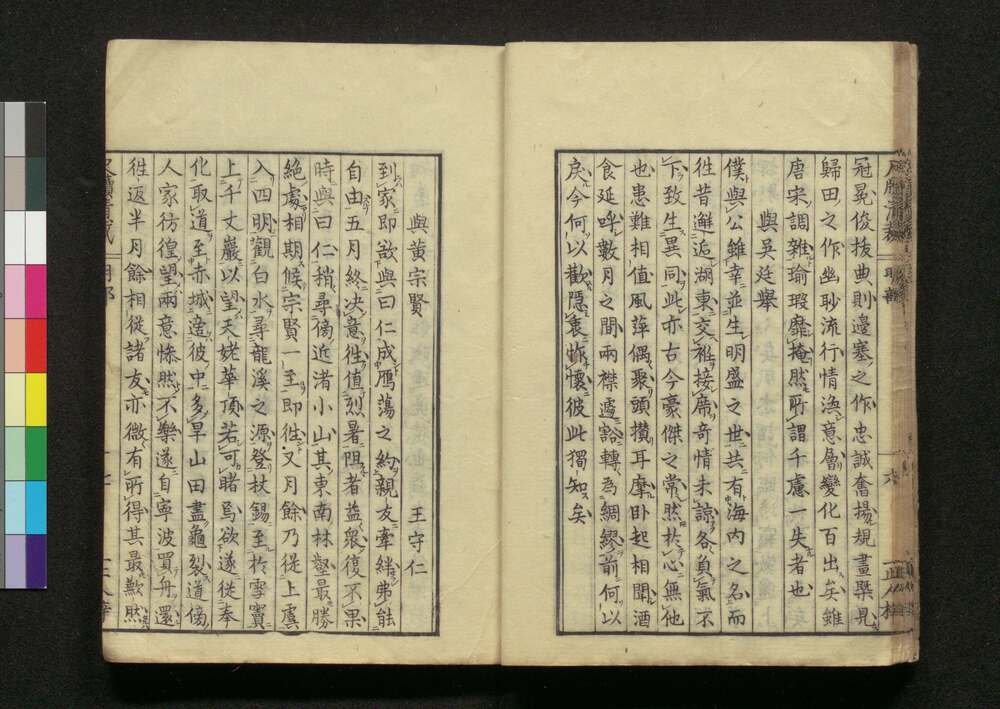 冠冕俊拔典則邊塞之作忠誠奮揚規畫槩見
歸田之作幽眇流行情渙意層變化百出矣雖
唐宋調雜瑜瑕靡掩然所謂千慮一失者也
與吳廷舉
僕與公雖幸並生明盛之世共有海內之名而
徃昔邂逅湖東交雅接席奇情未諒各負氣不
下致生異同此亦古今豪傑之常然於心無他
也患難相值風萍偶聚頭攢耳摩卧起相聞酒
食延呼數月之間兩襟遽豁轉為綢繆前何以
戾今何以歡隱衷怍懷彼此獨知矣
與黃宗賢
王守仁
到家即欲與曰仁成鴈蕩之約親友牽絆弗能
自由五月終决意徃值烈暑阻者益衆復不果
時與曰仁稍尋傍近渚小山其東南林壑最勝
絶處相期候宗賢一至即徃又月餘乃從上虞
入四明觀白水尋龍溪之源登杖錫至於雪竇
上千丈巖以望天姥華頂若可睹焉欲遂從奉
化取道至赤城適彼中多旱山田盡龜裂道傍
人家彷徨望雨意慘然不樂遂自寧波買舟還
徃返半月餘相從諸友亦微有所得其最歉然